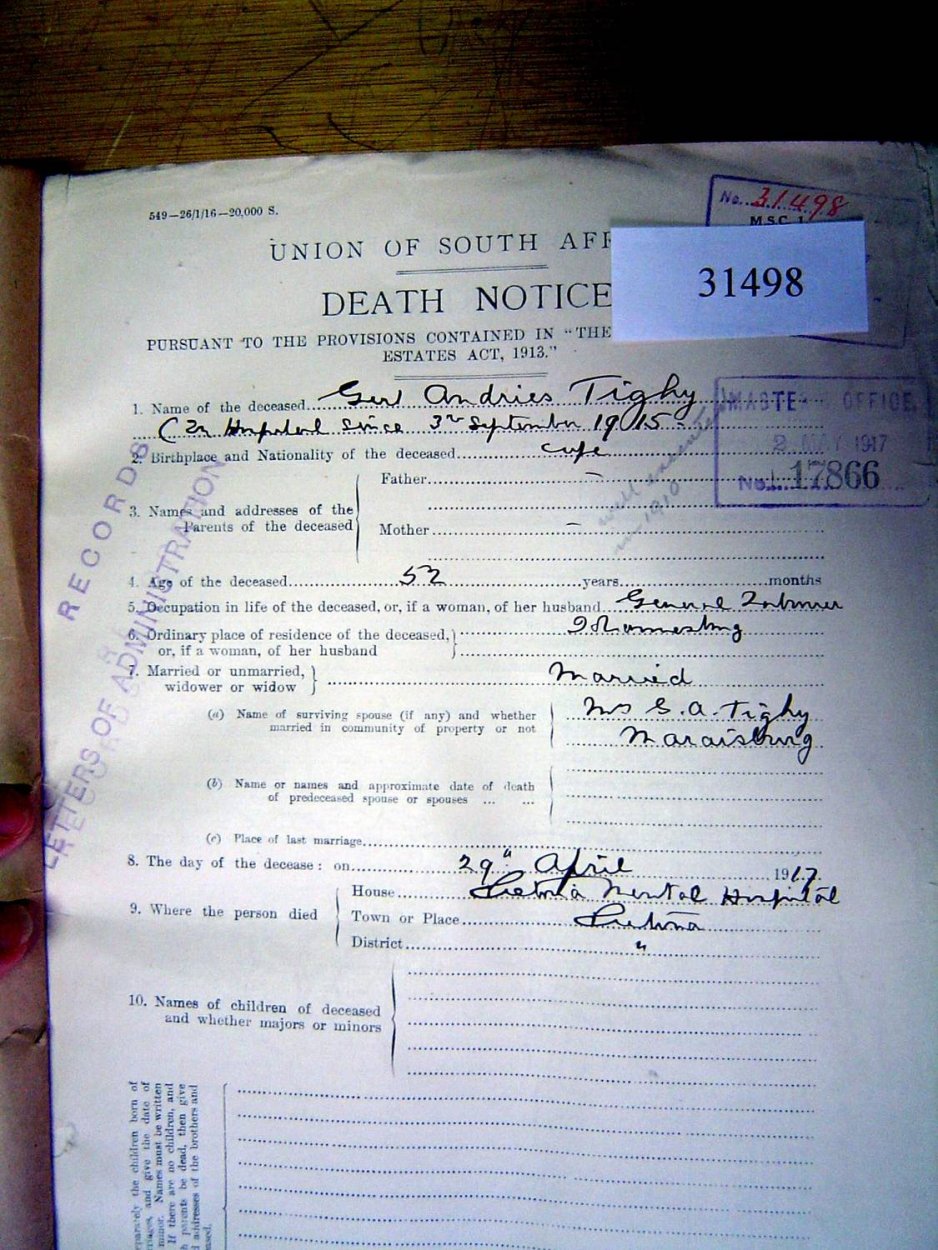 549—26/1/16—20,000 S.
No. 31498
M.S.C. 1
UNION OF SOUTH AFR
31498
DEATH NOTICE
PURSUANT TO THE PROVISIONS CONTAINED IN "THE
ESTATES ACT, 1913."
MASTER'S OFFICE
2 MAY 1917
No. 17866
1. Name of the deceased Gert Andries Tighy
(In Hospital Since 3rd September 1915.
2. Birthplace and Nationality of the deceased Cape
3. Names and addresses of the
Parents of the deceased
Father –
Mother –
in 1910
4. Age of the deceased 52 years months
5. Occupation in life of the deceased, or, if a woman, of her husband General Labourer
6. Ordinary place of residence of the deceased,
or, if a woman, of her husband
Johannesburg
7. Married or unmarried,
widower or widow
Married
(a) Name of surviving spouse (if any) and whether
married in community of property or not
Mrs G. A. Tighy
Maraisburg
(b) Name or names and approximate date of death
of predeceased spouse or spouses ... ...
(c) Place of last marriage
8. The day of the decease: on 29th April 1917
9. Where the person died
House Pretoria Mental Hospital
Town or Place Pretoria
District "
10. Names of children of deceased
and whether majors or minors
RECORDS
LETTERS OF ADMINISTRATION
parately the children born of
riages, and give the date of
minor. Names must be written
If there are no children, and
h parents be dead, then give
d addresses of the brothers and
ased.